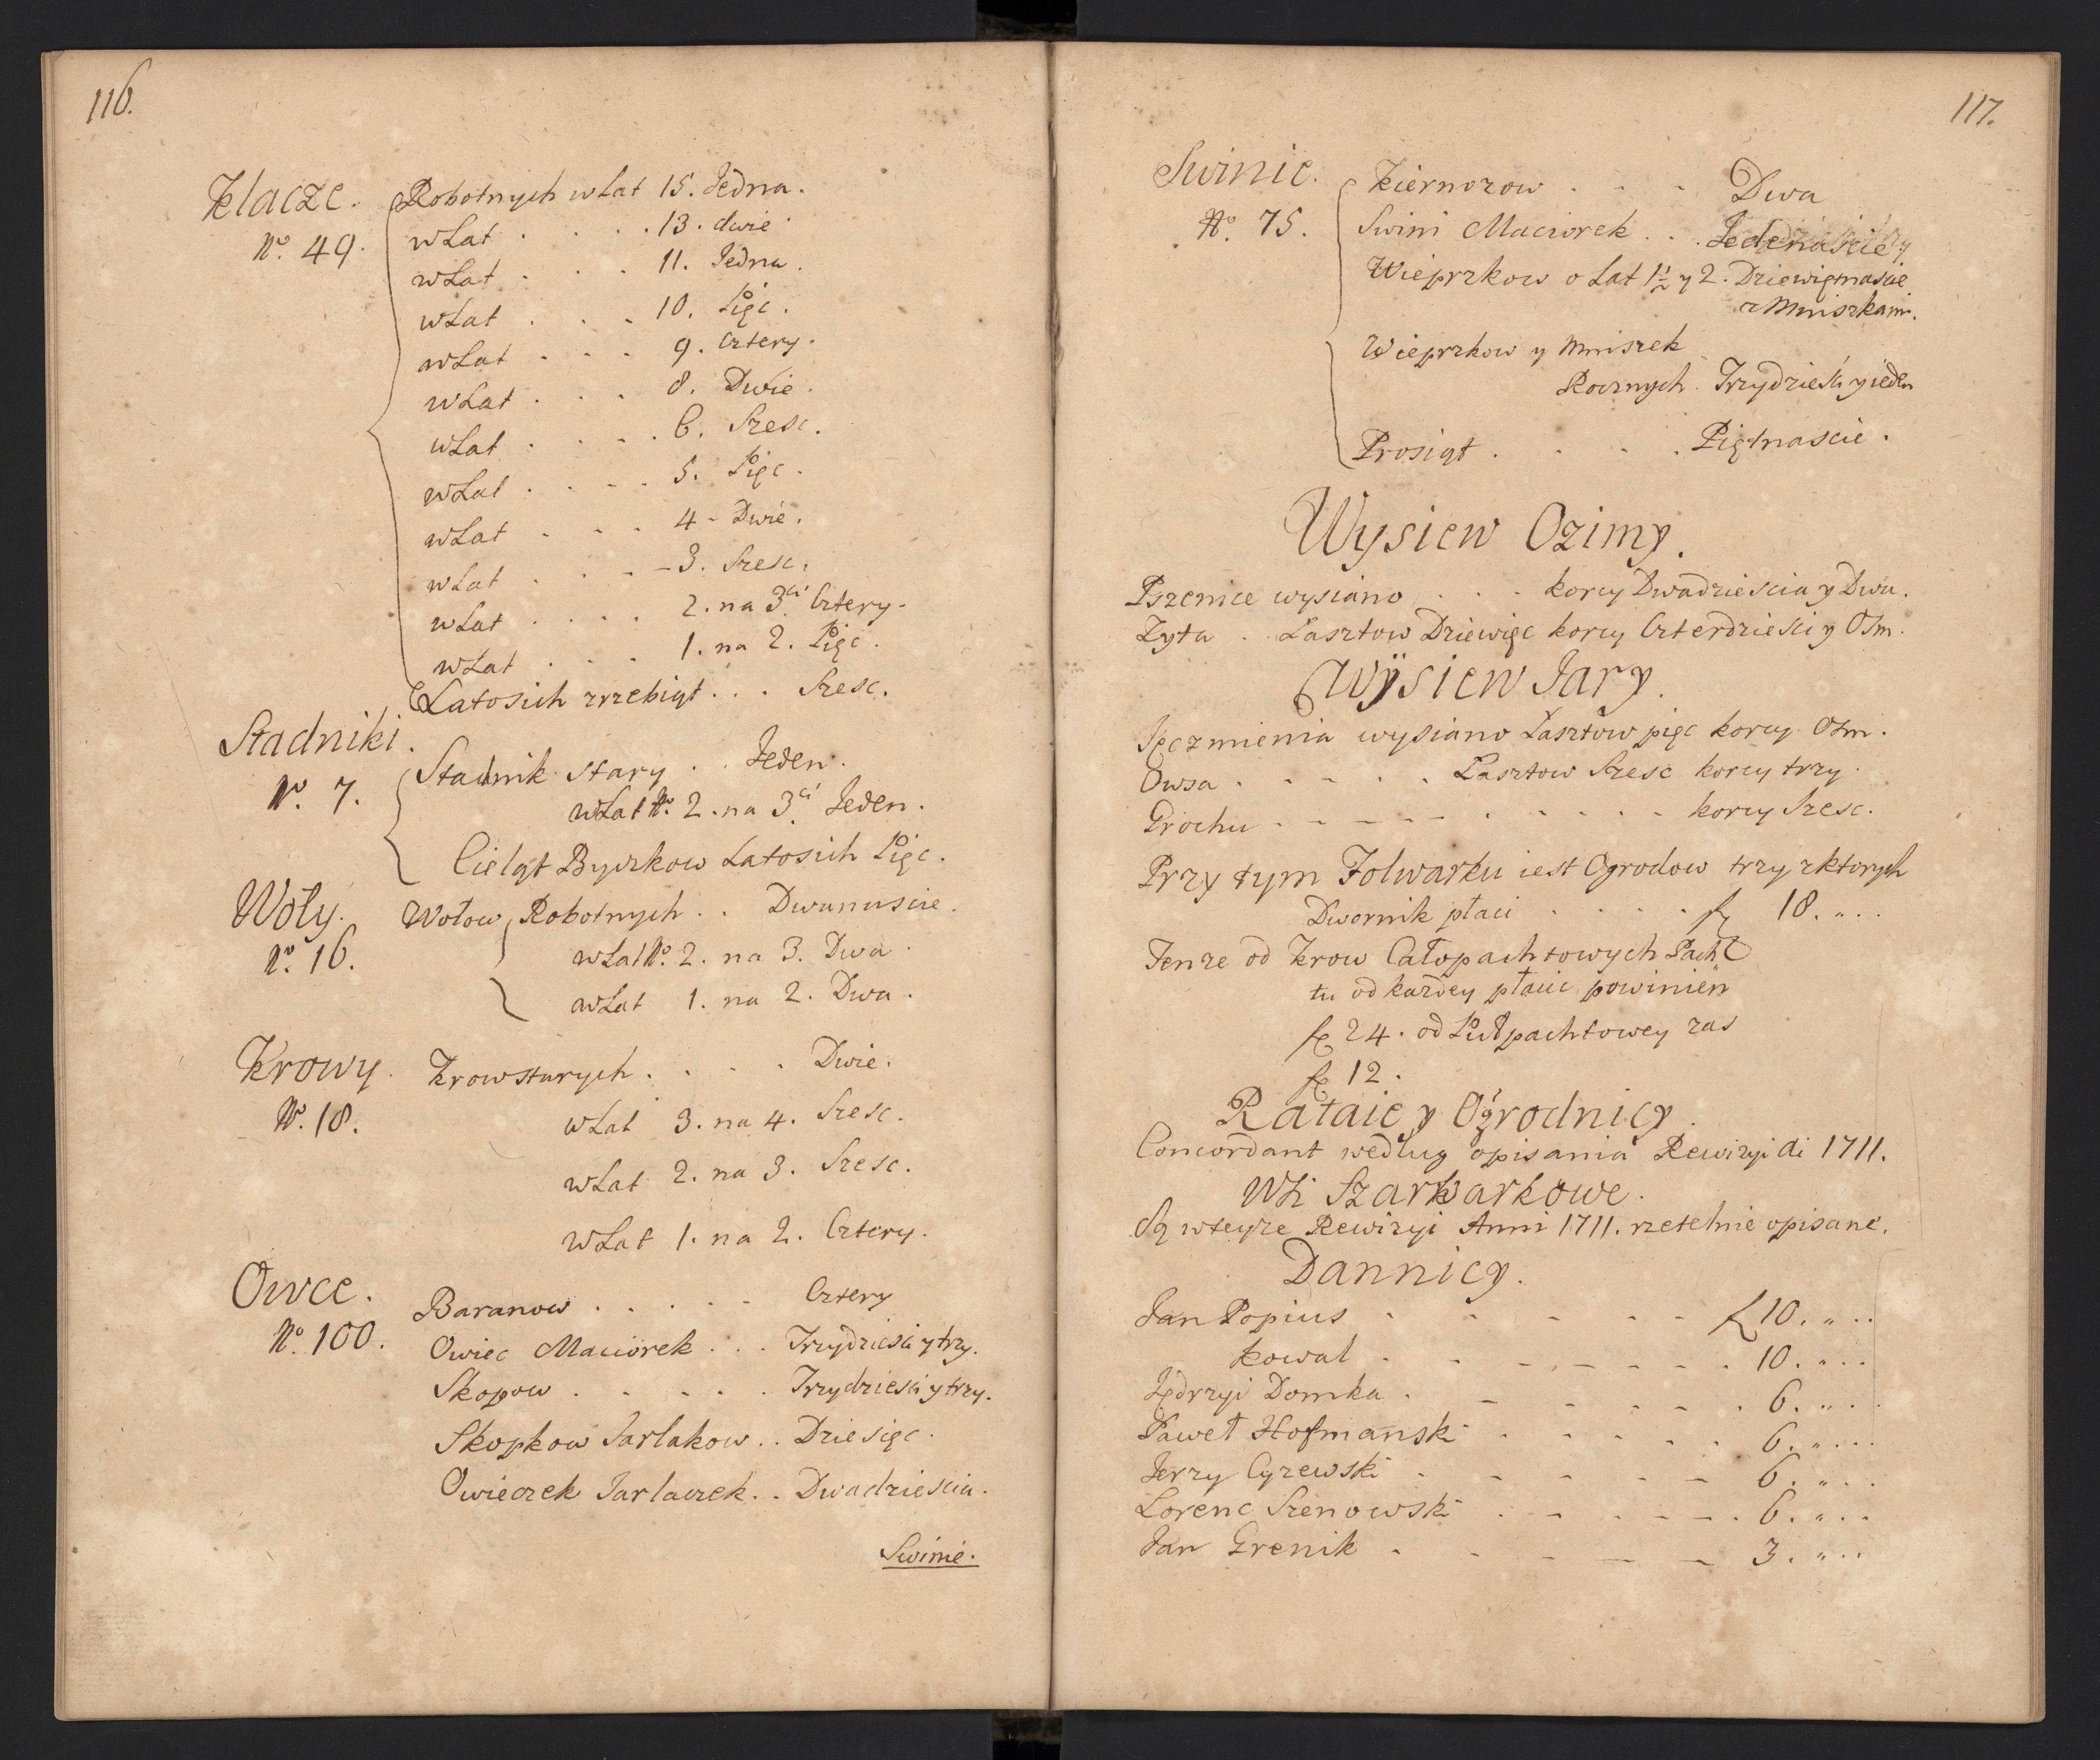 116.
Klacze. Robotnych w Lat 15. Jedna.
No. 49. w Lat . . . . 13. dwie
w Lat . . . 11. Jedna.
w Lat . . . 10. Pięc.
w Lat . . . 9. Cztery.
w Lat . . . 8. Dwie.
w Lat . . . . 6. Szesc.
w Lat . . . . 5. Pięc.
w Lat . . . 4 - Dwie.
w Lat . . . . 3. Szesc.
w Lat . . . . 2. na 3ci Cztery.
w Lat . . . 1. na 2. Pięc.
Latosich zrzebiąt . . . Szesc.
Stadniki.
No. 7. Stadnik stary . . Jeden.
w Lat No. 2. na 3ci Jeden.
Cieląt Byczkow Latosich Pięc.
Woły. Wołow Robotnych . . Dwanascie.
No. 16. w Lat No. 2. na 3. Dwa
w Lat 1. na 2. Dwa.
Krowy. Krow starych . . . . Dwie.
No. 18. w Lat 3. na 4. Szesc.
w Lat 2. na 3. Szesc.
w Lat 1. na 2. Cztery.
Owce. Baranow . . . . . Cztery
No. 100. Owiec Maciorek . . . Trzydziesci y trzy.
Skopow . . . . . Trzydziesci y trzy.
Skopkow Jarlakow . . Dziesięc.
Owieczek Jarlaczek . . Dwadziescia.
Swinie.
117.
Swinie. Kiernozow . . . Dwa
No. 75. Swini Maciorek . . . Jedenascie
Wieprzkow o Lat 1½ y 2. Dziewiętnascie
z Mniszkami.
Wieprzkow y Mniszek
Rocznych. Trzydziesci y ieden
Prosiąt . . . . Piętnascie.
Wysiew Ozimy.
Pszenice wysiano . . . korcy Dwadziescia y Dwa.
Zyta . . Lasztow Dziewięc korcy Czterdziesci y Osm.
Wysiew Jary.
Jęczmienia wysiano Lasztow pięc korcy Osm.
Owsa . . . . . Lasztow Szesc korcy trzy.
Grochu . . . . . . . . . . korcy Szesc.
Przy tym Folwarku iest Ogrodow trzy z ktorych
Dwornik płaci . . . . . f 18. „ . .
Tenze od Krow Całopachtowych Pach
tu od kazdey płacic powinien
f 24. od Pułpachtowey zas
f 12.
Rataie y Ogrodnicy.
Concordant według opisania Rewizyi di 1711.
Wsi Szarwarkowe.
Są w teyze Rewizyi Anni 1711. rzetelnie opisane.
Dannicy.
Jan Popius . . . . . . f 10. „ . .
Kowal . . . . . . . 10. „ . .
Jędrzyi Domka . . . . . . 6. „ . .
Paweł Hofmanski . . . . . 6. „ . .
Jerzy Cyzewski . . . . . 6. „ . .
Lorenc Szenowski . . . . . . 6. „ . .
Jan Grenik . . . . . 3. „ . .